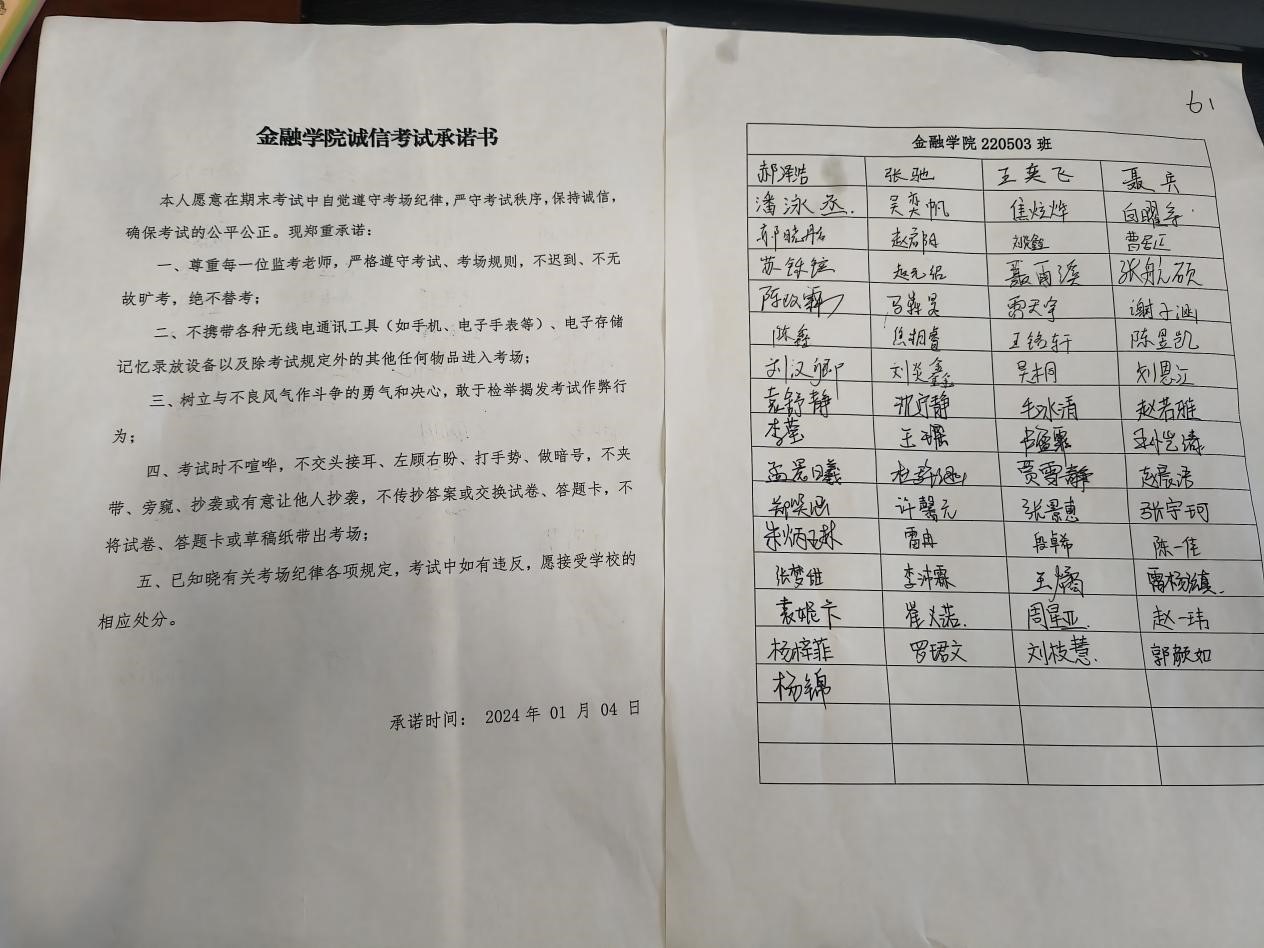 金融学院诚信考试承诺书
本人愿意在期末考试中自觉遵守考场纪律，严守考试秩序，保持诚信，
确保考试的公平公正。现郑重承诺：
一、尊重每一位监考老师，严格遵守考试、考场规则，不迟到、不无
故旷考，绝不替考；
二、不携带各种无线电通讯工具（如手机、电子手表等）、电子存储
记忆录放设备以及除考试规定外的其他任何物品进入考场；
三、树立与不良风气作斗争的勇气和决心，敢于检举揭发考试作弊行
为；
四、考试时不喧哗，不交头接耳、左顾右盼、打手势、做暗号，不夹
带、旁窥、抄袭或有意让他人抄袭，不传抄答案或交换试卷、答题卡，不
将试卷、答题卡或草稿纸带出考场；
五、已知晓有关考场纪律各项规定，考试中如有违反，愿接受学校的
相应处分。
承诺时间： 2024 年 01 月 04 日
61
金融学院 220503 班
郝泽浩 张驰 王奕飞 聂兵
潘泳丞 吴奕帆 焦炫烨
赵君阳 刘鑫
苏铄铉 赵元铭 聂雨溪 张航硕
贾天宇 谢子涵
陈鑫 焦翔睿 王铭轩 陈昱凯
刘汉卿 刘炎鑫 吴桐 刘恩江
袁舒静 沈宁静 毛冰清 赵若雅
李莹 王瑶
孟景曦 贾雪静 赵晨浩
许馨元 张景惠 张宇珂
朱炳玉林 雷冉 段卓希 陈一佳
李沛霖 王熵
袁妮卡 崔义诺 周星亚 赵一玮
杨梓菲 罗珺文 刘枝慧 郭颜如
杨锦